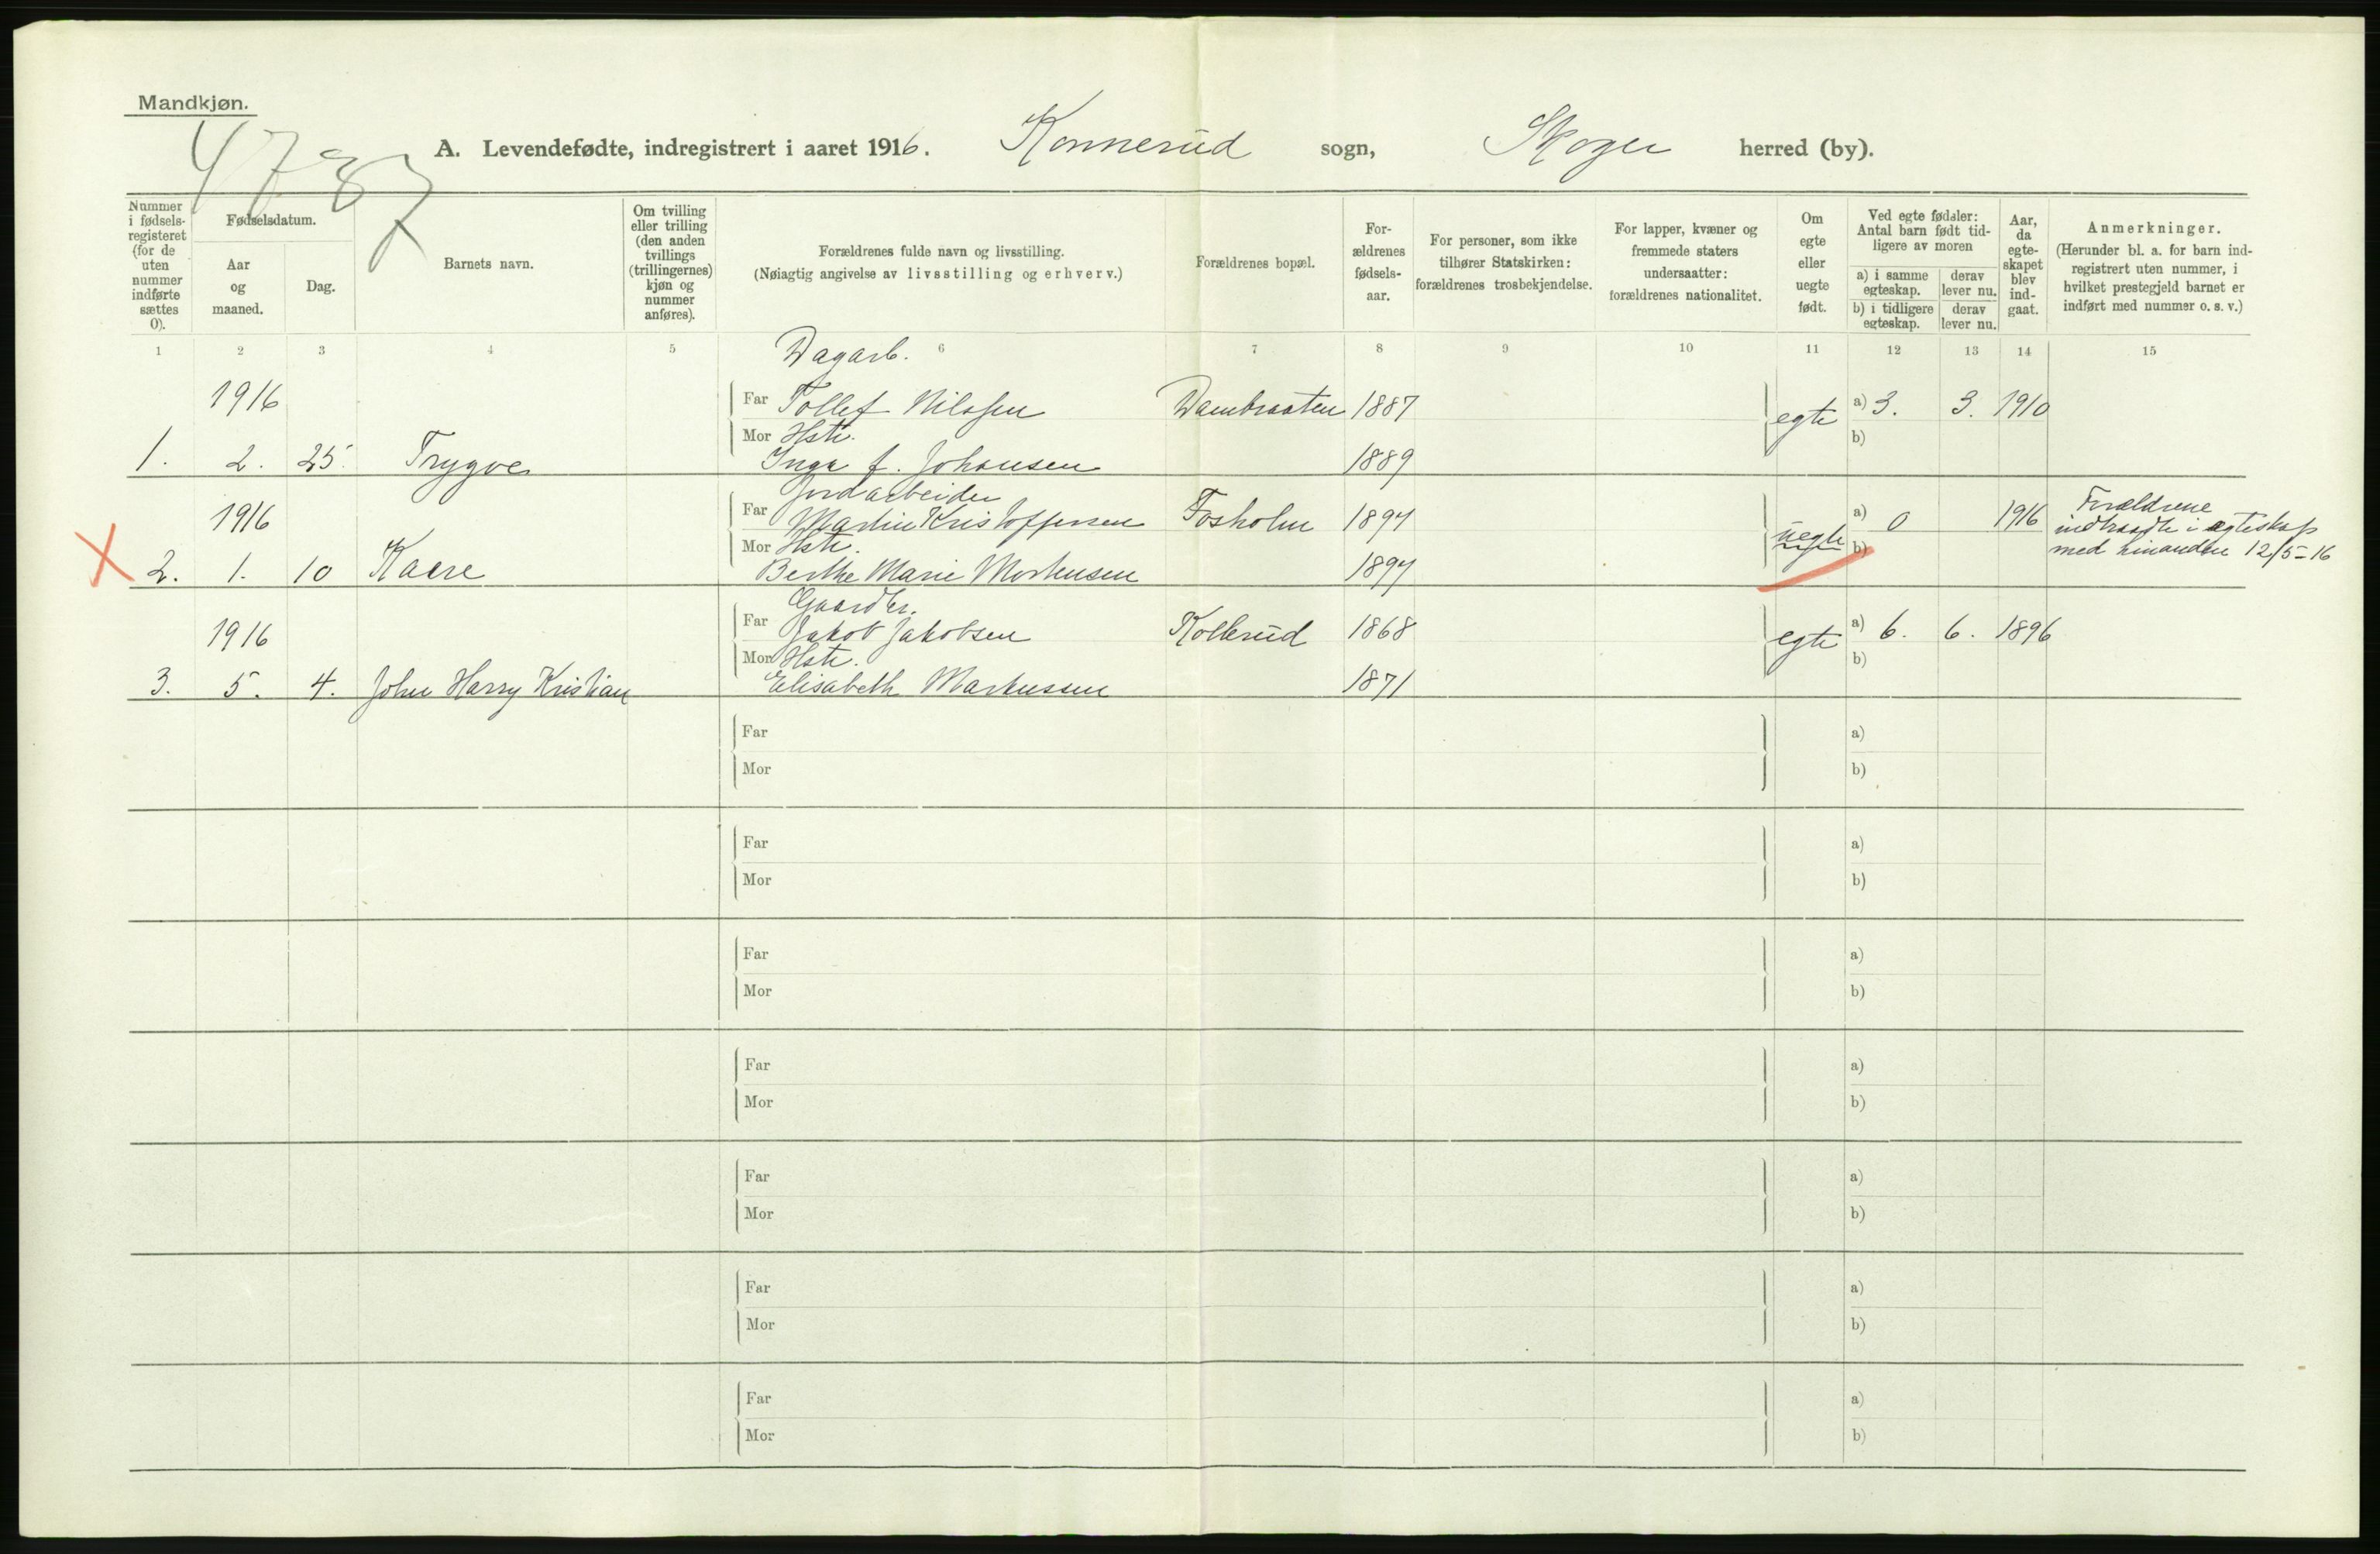 Mandkjøn.
4787
A. Levendefødte, indregistrert i aaret 1916. Konnerud sogn, Skoger herred (by).
Nummer i fødsels-registeret (for de uten nummer indførte sættes 0).
Fødselsdatum.
Aar og maaned.
Dag.
Barnets navn.
Om tvilling eller trilling (den anden tvillings (trillingernes) kjøn og nummer anføres).
Forældrenes fulde navn og livsstilling.
(Nøiagtig angivelse av livsstilling og erhverv.)
Forældrenes bopæl.
For-ældrenes fødsels-aar.
For personer, som ikke tilhører Statskirken: forældrenes trosbekjendelse.
For lapper, kvæner og fremmede staters undersaatter: forældrenes nationalitet.
Om egte eller uegte født.
Ved egte fødsler: Antal barn født tid-ligere av moren
a) i samme egteskap. derav lever nu.
b) i tidligere egteskap. derav lever nu.
Aar, da egte-skapet blev ind-gaat.
Anmerkninger.
(Herunder bl. a. for barn ind-registrert uten nummer, i hvilket prestegjeld barnet er indført med nummer o. s. v.)
1 2 3 4 5 6 7 8 9 10 11 12 13 14 15
Dagarb.
1916 Far Tollef Nilssen Dambraaten 1887 egte a) 3. 3. 1910
Mor Hstr. b)
1. 2. 25. Trygve Inga f. Johansen 1889
Jordarbeider
1916 Far Martin Kristoffersen Fosholm 1894 uegte a) 0 1916 Forældrene indtraadte i egteskap med hinanden 12/5-16
Mor Hstr. b)
X 2. 1. 10 Kaare Berthe Marie Mortensen 1894
Gaardbr.
1916 Far Jakob Jakobsen Kollerud 1868 egte a) 6. 6. 1896
Mor Hstr. b)
3. 5. 4. John Harry Kristian Elisabeth Markussen 1871
Far a)
Mor b)
Far a)
Mor b)
Far a)
Mor b)
Far a)
Mor b)
Far a)
Mor b)
Far a)
Mor b)
Far a)
Mor b)